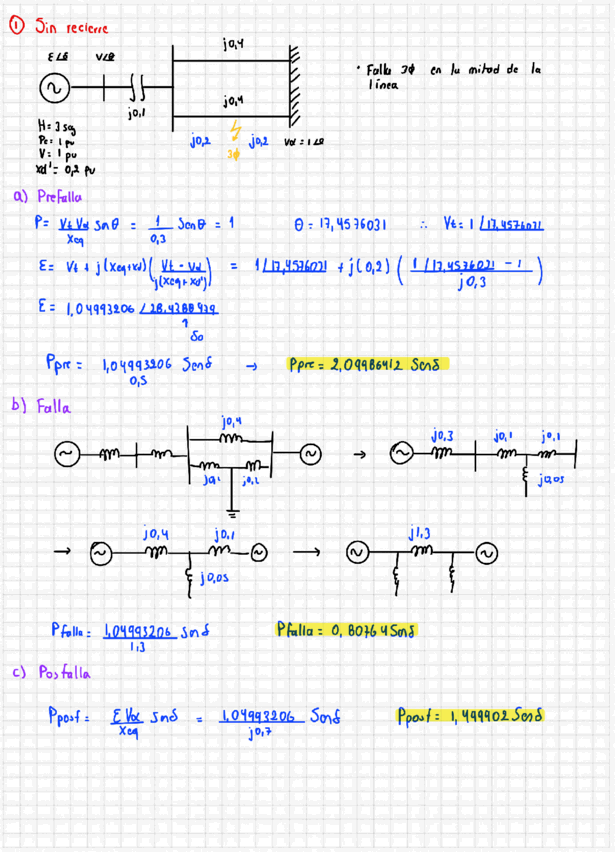 ① Sin recierre
j0,4
E∠δ
V∠θ
j0,1
j0,4
j0,2
j0,2
3ϕ
V∞ = 1∠0
• Falla 3ϕ en la mitad de la
línea
H = 3 seg
Pe = 1 pu
V = 1 pu
xd' = 0,2 pu
a) Prefalla
P = Vt V∞/Xeq Senθ = 1/0,3 Senθ = 1 θ = 17,4576031 ∴ Vt = 1∠17,4576031
E = Vt + j(Xeq+xd)(Vt - V∞/j(Xeq+Xd')) = 1∠17,4576031 + j(0,2)(1∠17,4576031 - 1/j0,3)
E = 1,04993206∠28,4388939
↑
δo
Ppre = 1,04993206/0,5 Senδ → Ppre = 2,09986412 Senδ
b) Falla
j0,4
j0,2
→
j0,3
j0,1
j0,1
j0,05
→
j0,4
j0,1
j0,05
→
j1,3
Pfalla = 1,04993206/1,3 Senδ Pfalla = 0,80764 Senδ
c) Posfalla
Pposf = E V∞/Xeq Senδ = 1,04993206/j0,7 Senδ Pposf = 1,499902 Senδ